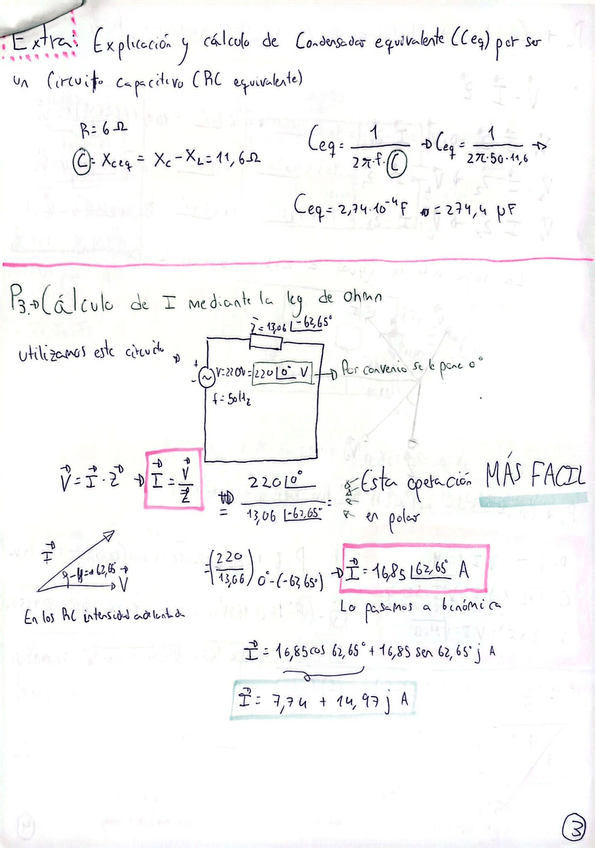 Extra: Explicación y cálculo de Condensador equivalente (Ceq) por ser
un Circuito capacitivo (RC equivalente)
R=6Ω
C= Xceq = Xc-XL=11,6Ω
Ceq= 1/(2π·f·C) → Ceq= 1/(2π·50·11,6) →
Ceq=2,74·10⁻⁴F → =274,4 μF
P3.→Cálculo de I mediante la ley de Ohmn
utilizamos este circuito →
Z=13,06 |-62,65°
V=220V=220|0° V → Por convenio se le pone 0°
f=50Hz
V=I·Z → I=V/Z ⇒ = 220|0° / 13,06|-62,65° =
Esta operación MÁS FACIL
en polar
I
φ=+62,65°
V
En los RC intensidad adelantada
=(220/13,06) 0°-(-62,65°) → I=16,85|62,65° A
Lo pasamos a binómica
I=16,85cos 62,65°+16,85 sen 62,65°j A
I= 7,74 + 14,97j A
3